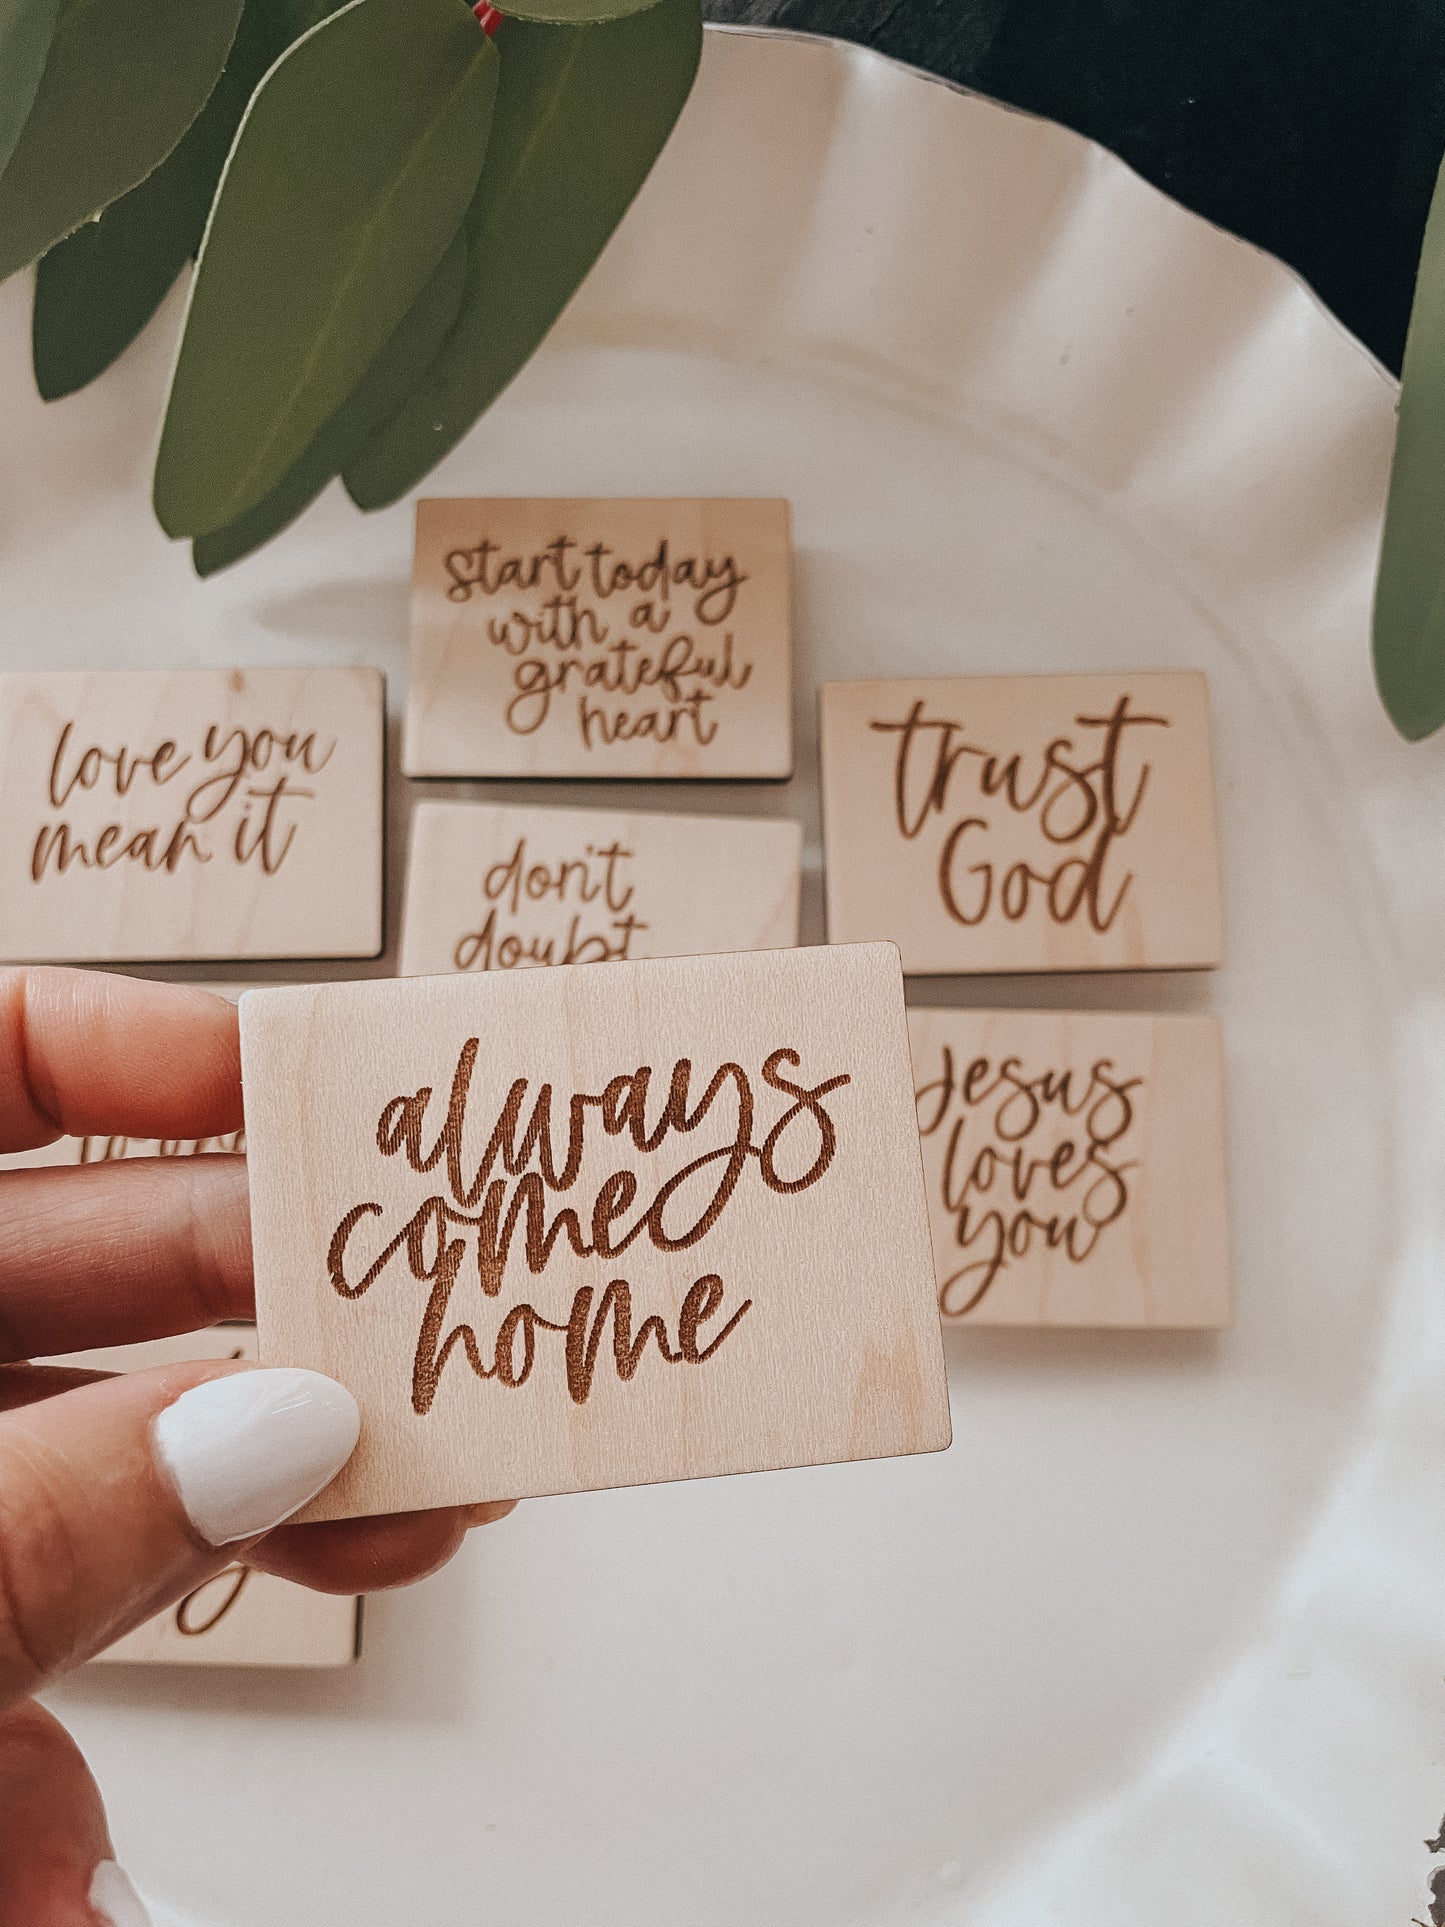 start today
with a
grateful
heart
love you
mean it
trust
God
don't
doubt
always
come
home
Jesus
loves
you